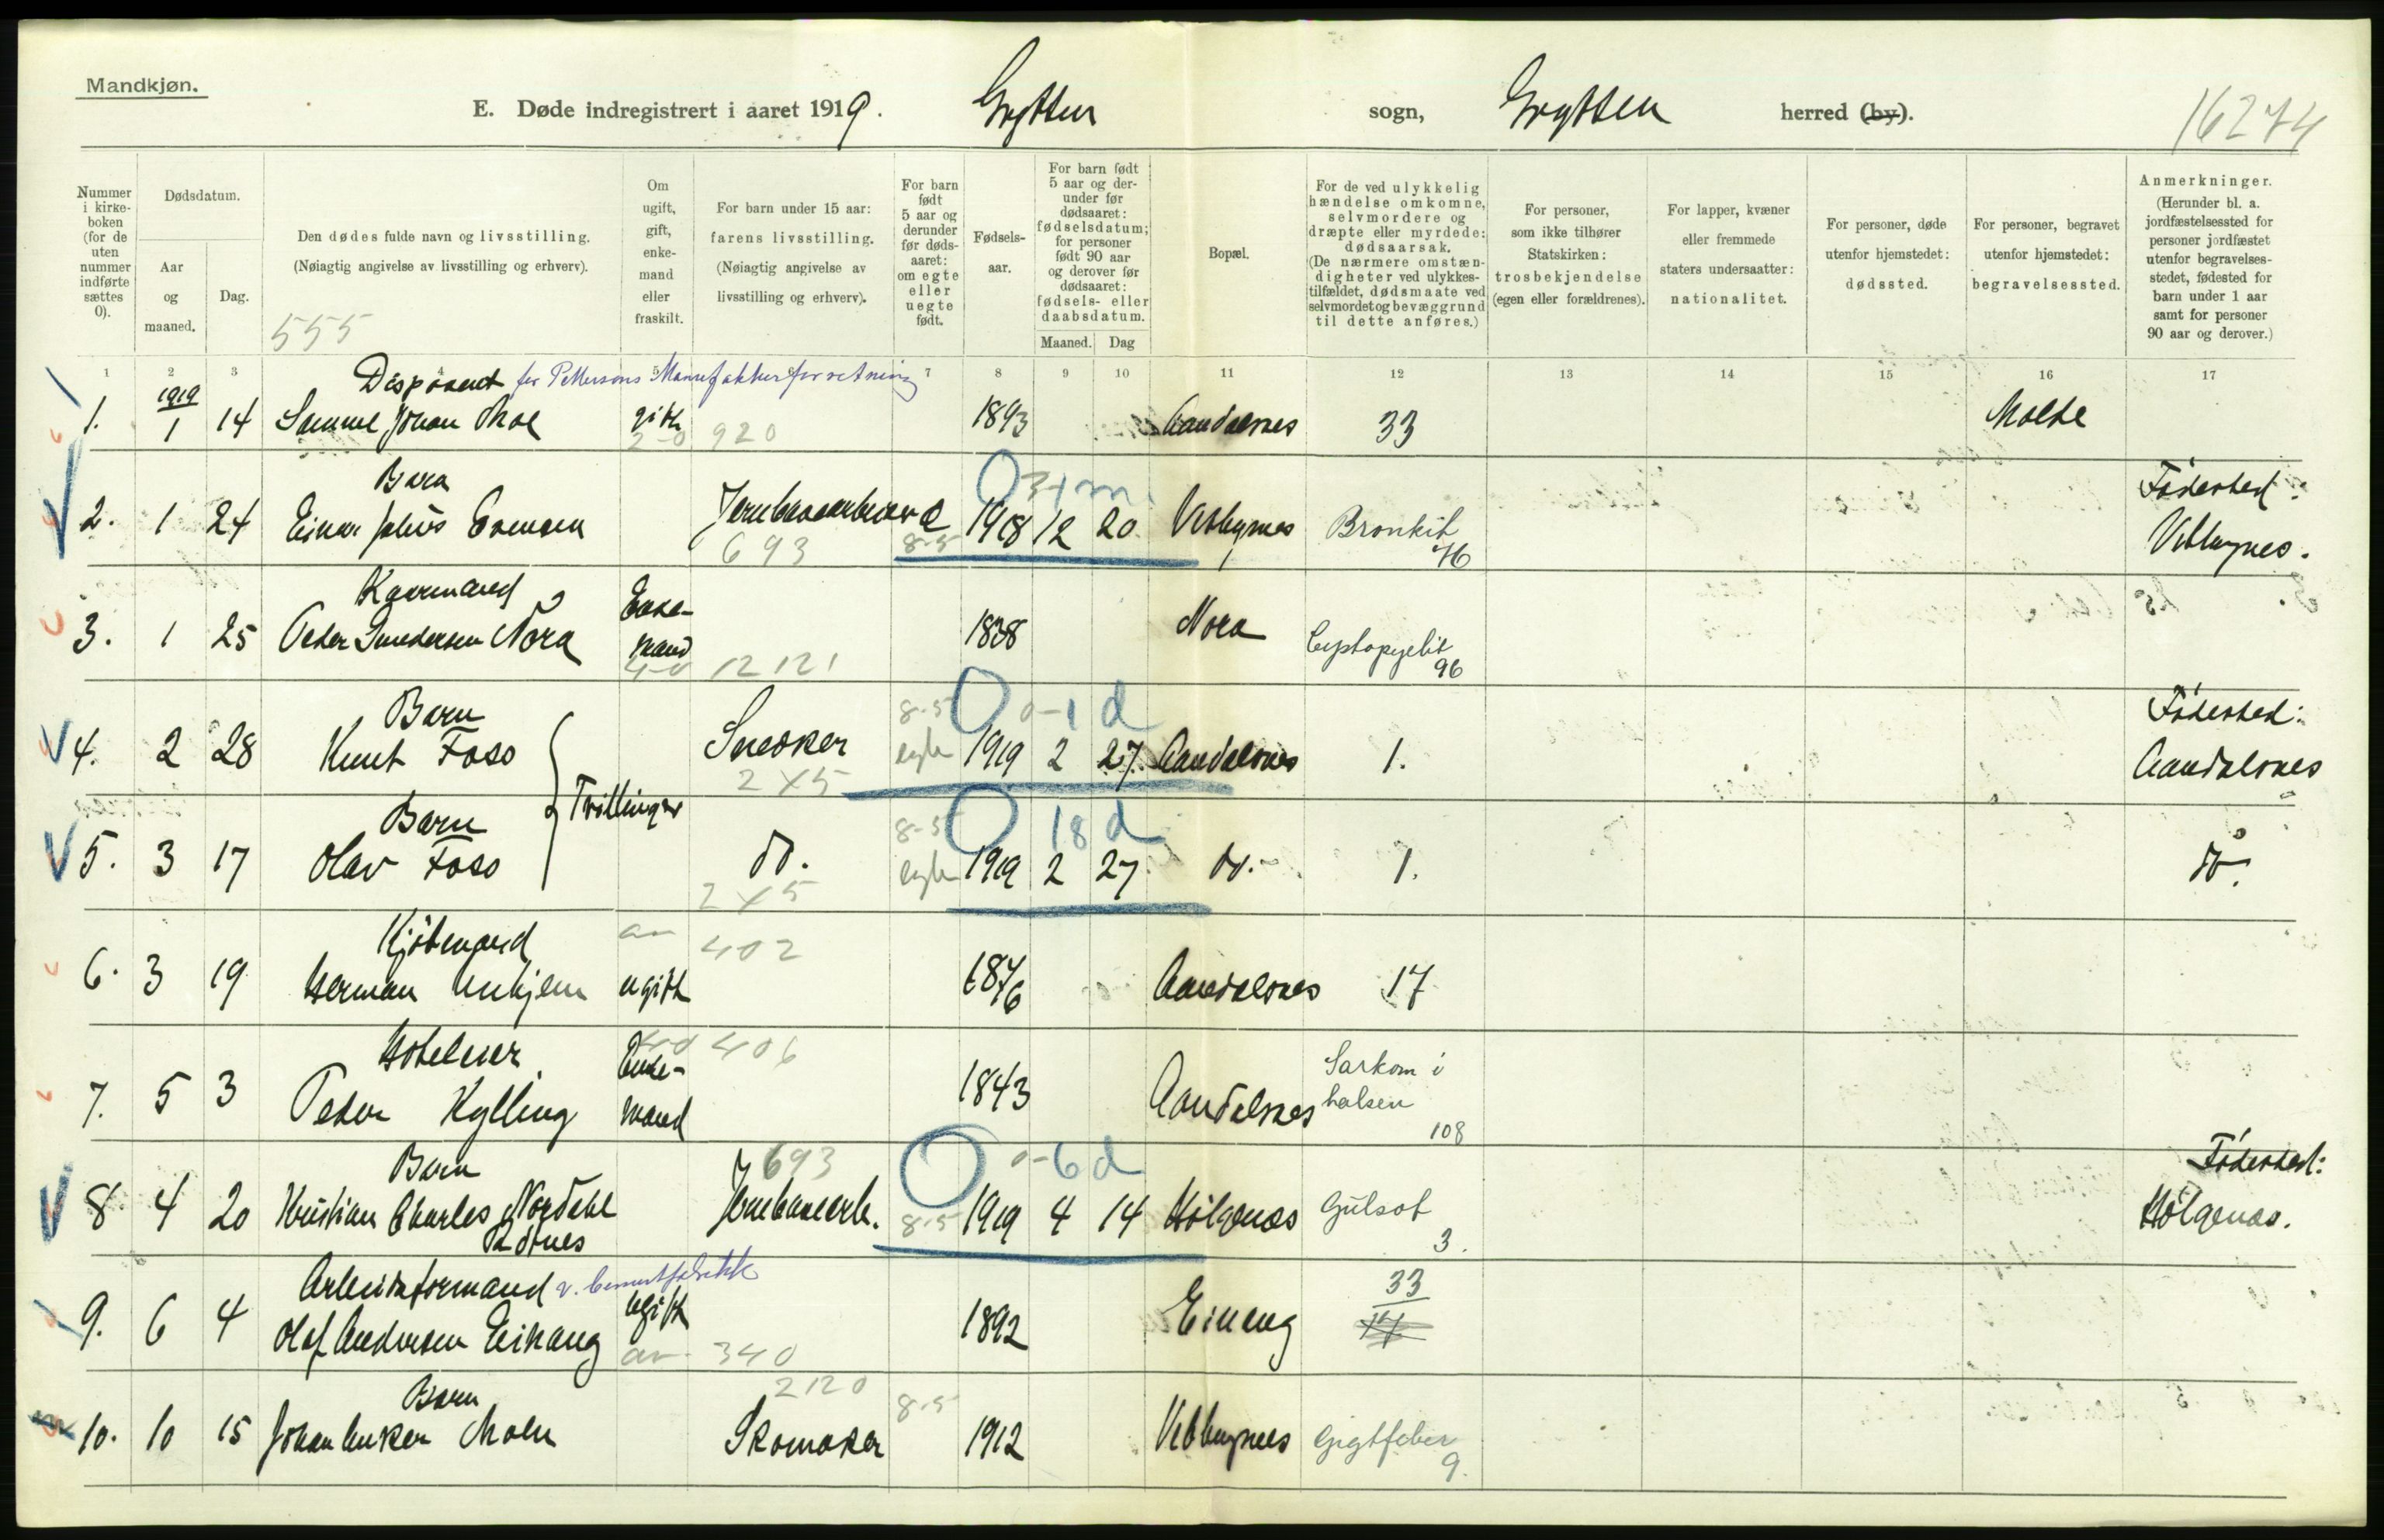 Mandkjøn.
E. Døde indregistrert i aaret 1919. Grytten sogn, Grytten herred (by).
16274
Nummer i kirkeboken (for de uten nummer indførte sættes 0).
Dødsdatum.
Aar og maaned.
Dag.
Den dødes fulde navn og livsstilling.
(Nøiagtig angivelse av livsstilling og erhverv).
555
Om ugift, gift, enkemand eller fraskilt.
For barn under 15 aar: farens livsstilling.
(Nøiagtig angivelse av livsstilling og erhverv).
For barn født 5 aar og derunder før dødsaaret: om egte eller uegte født.
Fødselsaar.
For barn født 5 aar og derunder før dødsaaret: fødselsdatum; for personer født 90 aar og derover før dødsaaret: fødsels- eller daabsdatum.
Maaned. Dag
Bopæl.
For de ved ulykkelig hændelse omkomne, selvmordere og dræpte eller myrdede: dødsaarsak.
(De nærmere omstændigheter ved ulykkestilfældet, dødsmaate ved selvmordet og bevæggrund til dette anføres.)
For personer, som ikke tilhører Statskirken: trosbekjendelse (egen eller forældrenes).
For lapper, kvæner eller fremmede staters undersaatter: nationalitet.
For personer, døde utenfor hjemstedet: dødssted.
For personer, begravet utenfor hjemstedet: begravelsessted.
Anmerkninger.
(Herunder bl. a. jordfæstelsessted for personer jordfæstet utenfor begravelsesstedet, fødested for barn under 1 aar samt for personer 90 aar og derover.)
1 2 3 4 5 6 7 8 9 10 11 12 13 14 15 16 17
Disponent for Pettersons Manufakturforretning
1. 1919 1 14 Johan Moe gift 1893 Aandalsnes 33 Molde
2-0 920
Barn 0 3-1 m. Fødested:
2. 1 24 Einar Julius Evensen 1918 12 20. Veblungsnes Bronkit 46 Veblungsnes.
693 8-5
Kaarmand Enke-
3. 1 25 Peder Nora mand 1838 Nora 96
4-0 12121
Barn 8-5 0 0-1 d Fødested:
4. 2 28 Knut Foss Snedker egte 1919 2 27. Aandalsnes 1. Aandalsnes
2X5
Tvillinger
Barn 8-5 0 18 d
5. 3 17 Olav Foss do. egte 1919 2 27 do. 1. do.
2X5
Kjøbmand 402
6. 3 19 Herman Unhjem ugift 1876 Aandalsnes 17
Hotelier 4-0 406 Enke- Sarkom i
7. 5 3 Peder Kylling mand 1843 Aandalsnes halsen 108
Barn 693 0 0-6 d Fødested:
8 4 20 Kristian Charles Nordahl Jernbanearb. 8-5 1919 4 14 Hølgenes Gulsot 3. Hølgenes.
Arbeidsformand v. Cementfabrikk 33
9. 6 4 Olaf Andersen Einang ugift 1892 Einang 17
340
Barn 2120 8-5
10. 10 15 Johan Anker Moen Skomaker 1912 Veblungsnes Gigtfeber 9.